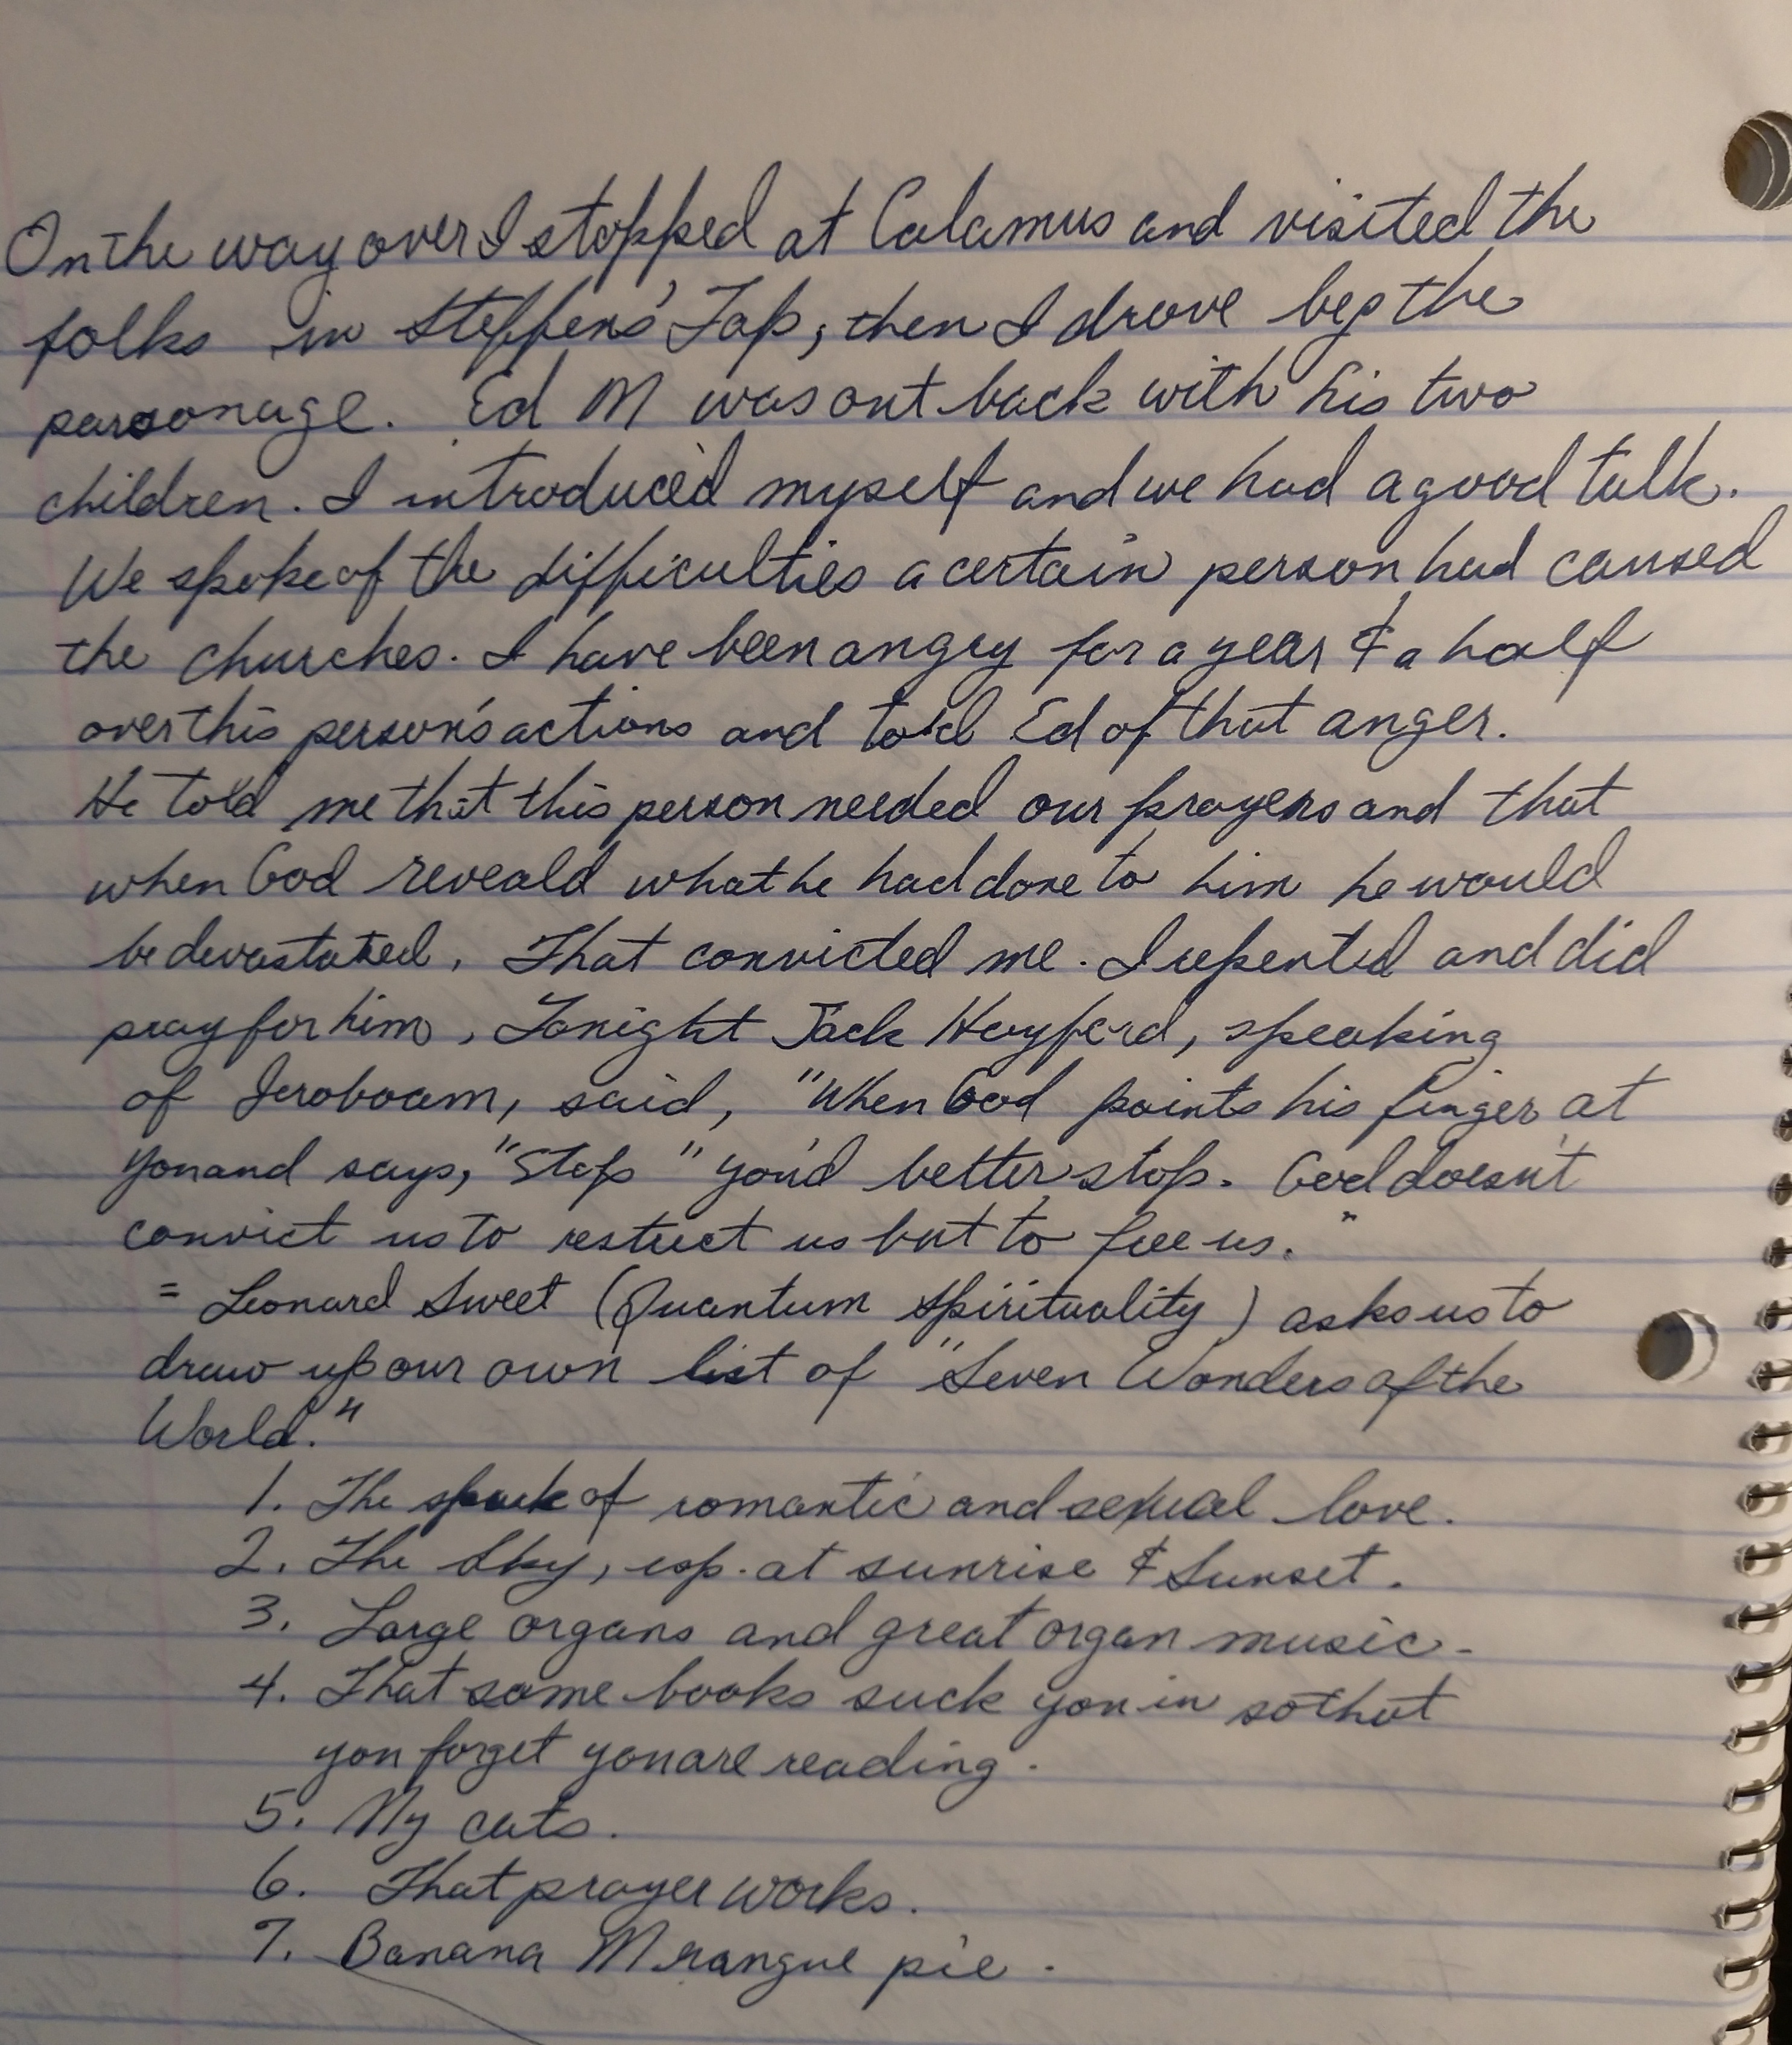 On the way over I stopped at Calamus and visited the
folks in Steffens' Tap, then I drove by the
parsonage. Ed M was out back with his two
children. I introduced myself and we had a good talk.
We spoke of the difficulties a certain person had caused
the churches. I have been angry for a year & a half
over this person's actions and told Ed of that anger.
He told me that this person needed our prayers and that
when God reveald what he had done to him he would
be devastated. That convicted me. I repented and did
pray for him. Tonight Jack Hayford, speaking
of Jeroboam, said, "When God points his finger at
you and says, "Stop" you'd better stop. God doesn't
convict us to restrict us but to free us."
= Leonard Sweet (Quantum Spirituality) asks us to
draw up our own list of "Seven Wonders of the
World."
1. The spark of romantic and sexual love.
2. The Sky, esp. at sunrise & Sunset.
3. Large organs and great organ music.
4. That some books suck you in so that
you forget you are reading.
5. My cats.
6. That prayer works.
7. Banana Mrangue pie.